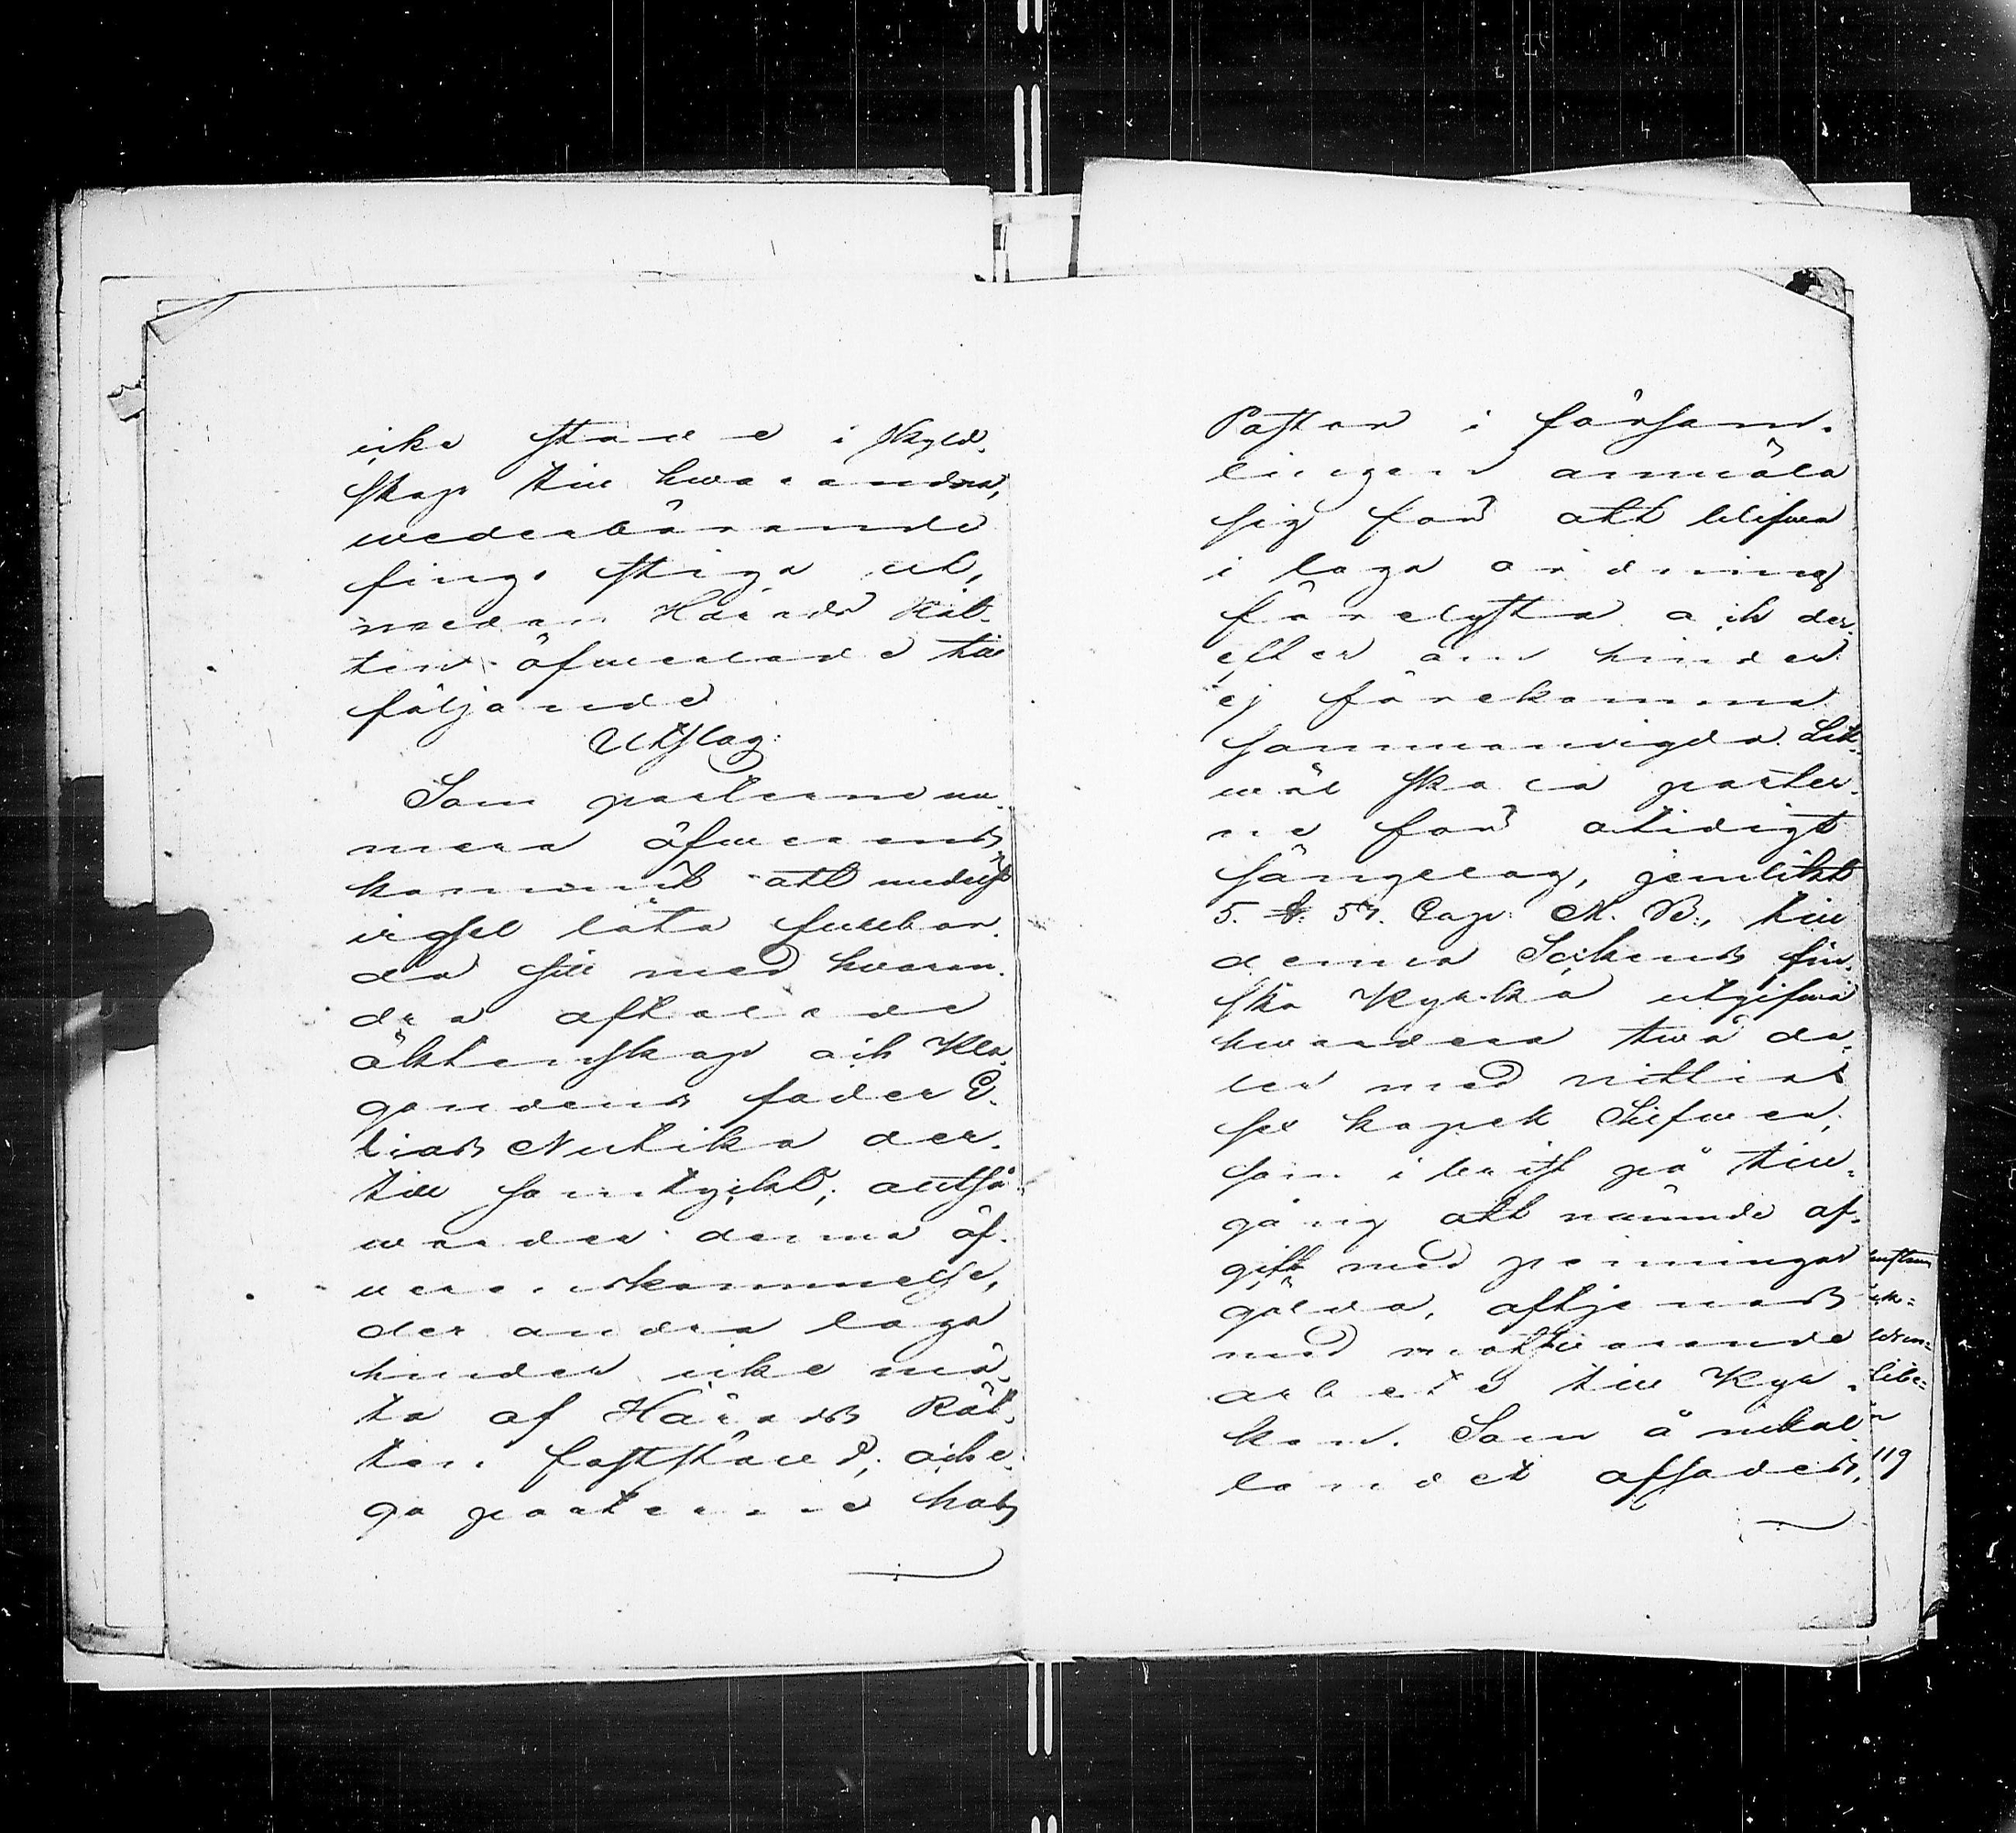 icke stode i skyld-
skap till hwarandra,
wederbörande
fingo stiga ut,
medan Härads Rät-
ten öfwerlade till
följande
Utslag:
Som parterne nu-
mera öfwerens
kommit att medelst
wigsel låta fullbor-
da sitt med hwaran-
dra aftalade
äktenskap och Kla-
gandens fader E-
lias Nutika der-
till samtyckt; alltså
warder denna öf-
werenskommelse,
der andra laga
hinder icke mö-
ta af Härads Rät-
ten fastställd; och e-
ga parterne hos
Pastor i försam-
lingen anmäla
sig för att blifwa
i laga ordning
förelysta och der-
efter om hinder
ej förekomma
sammanwigda. Lik-
wäl skola parter-
ne för otidigt
sängelag, jemlikt
5. §. 53. Cap: M. B., till
denna Sockens fin-
ska Kyrka utgifwa
hwardera twå da-
ler med nittio
sex kopek Silfwer,
som i brist på till-
gång att nämnde af-
gift med penningar
gälda, aftjenas
med motswarande
arbete till Kyr-
kan. Som ånekal-
landet afsades.
119